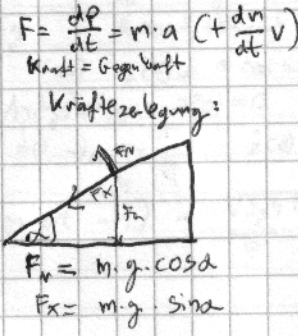 F = dp/dt = m·a (+ dm/dt v)
Kraft = Gegenkraft
Kräftezerlegung:
FN
Fx
α
FN = m·g·cosα
Fx = m·g·sinα